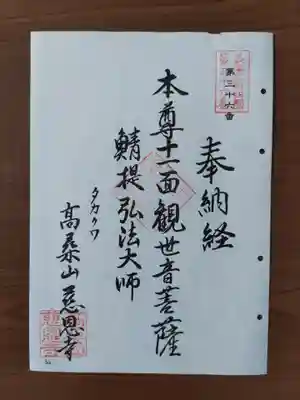 第三十六番
奉納経
本尊十一面観世音菩薩
鯖提弘法大師
タカクワ
高桑山慈恩寺